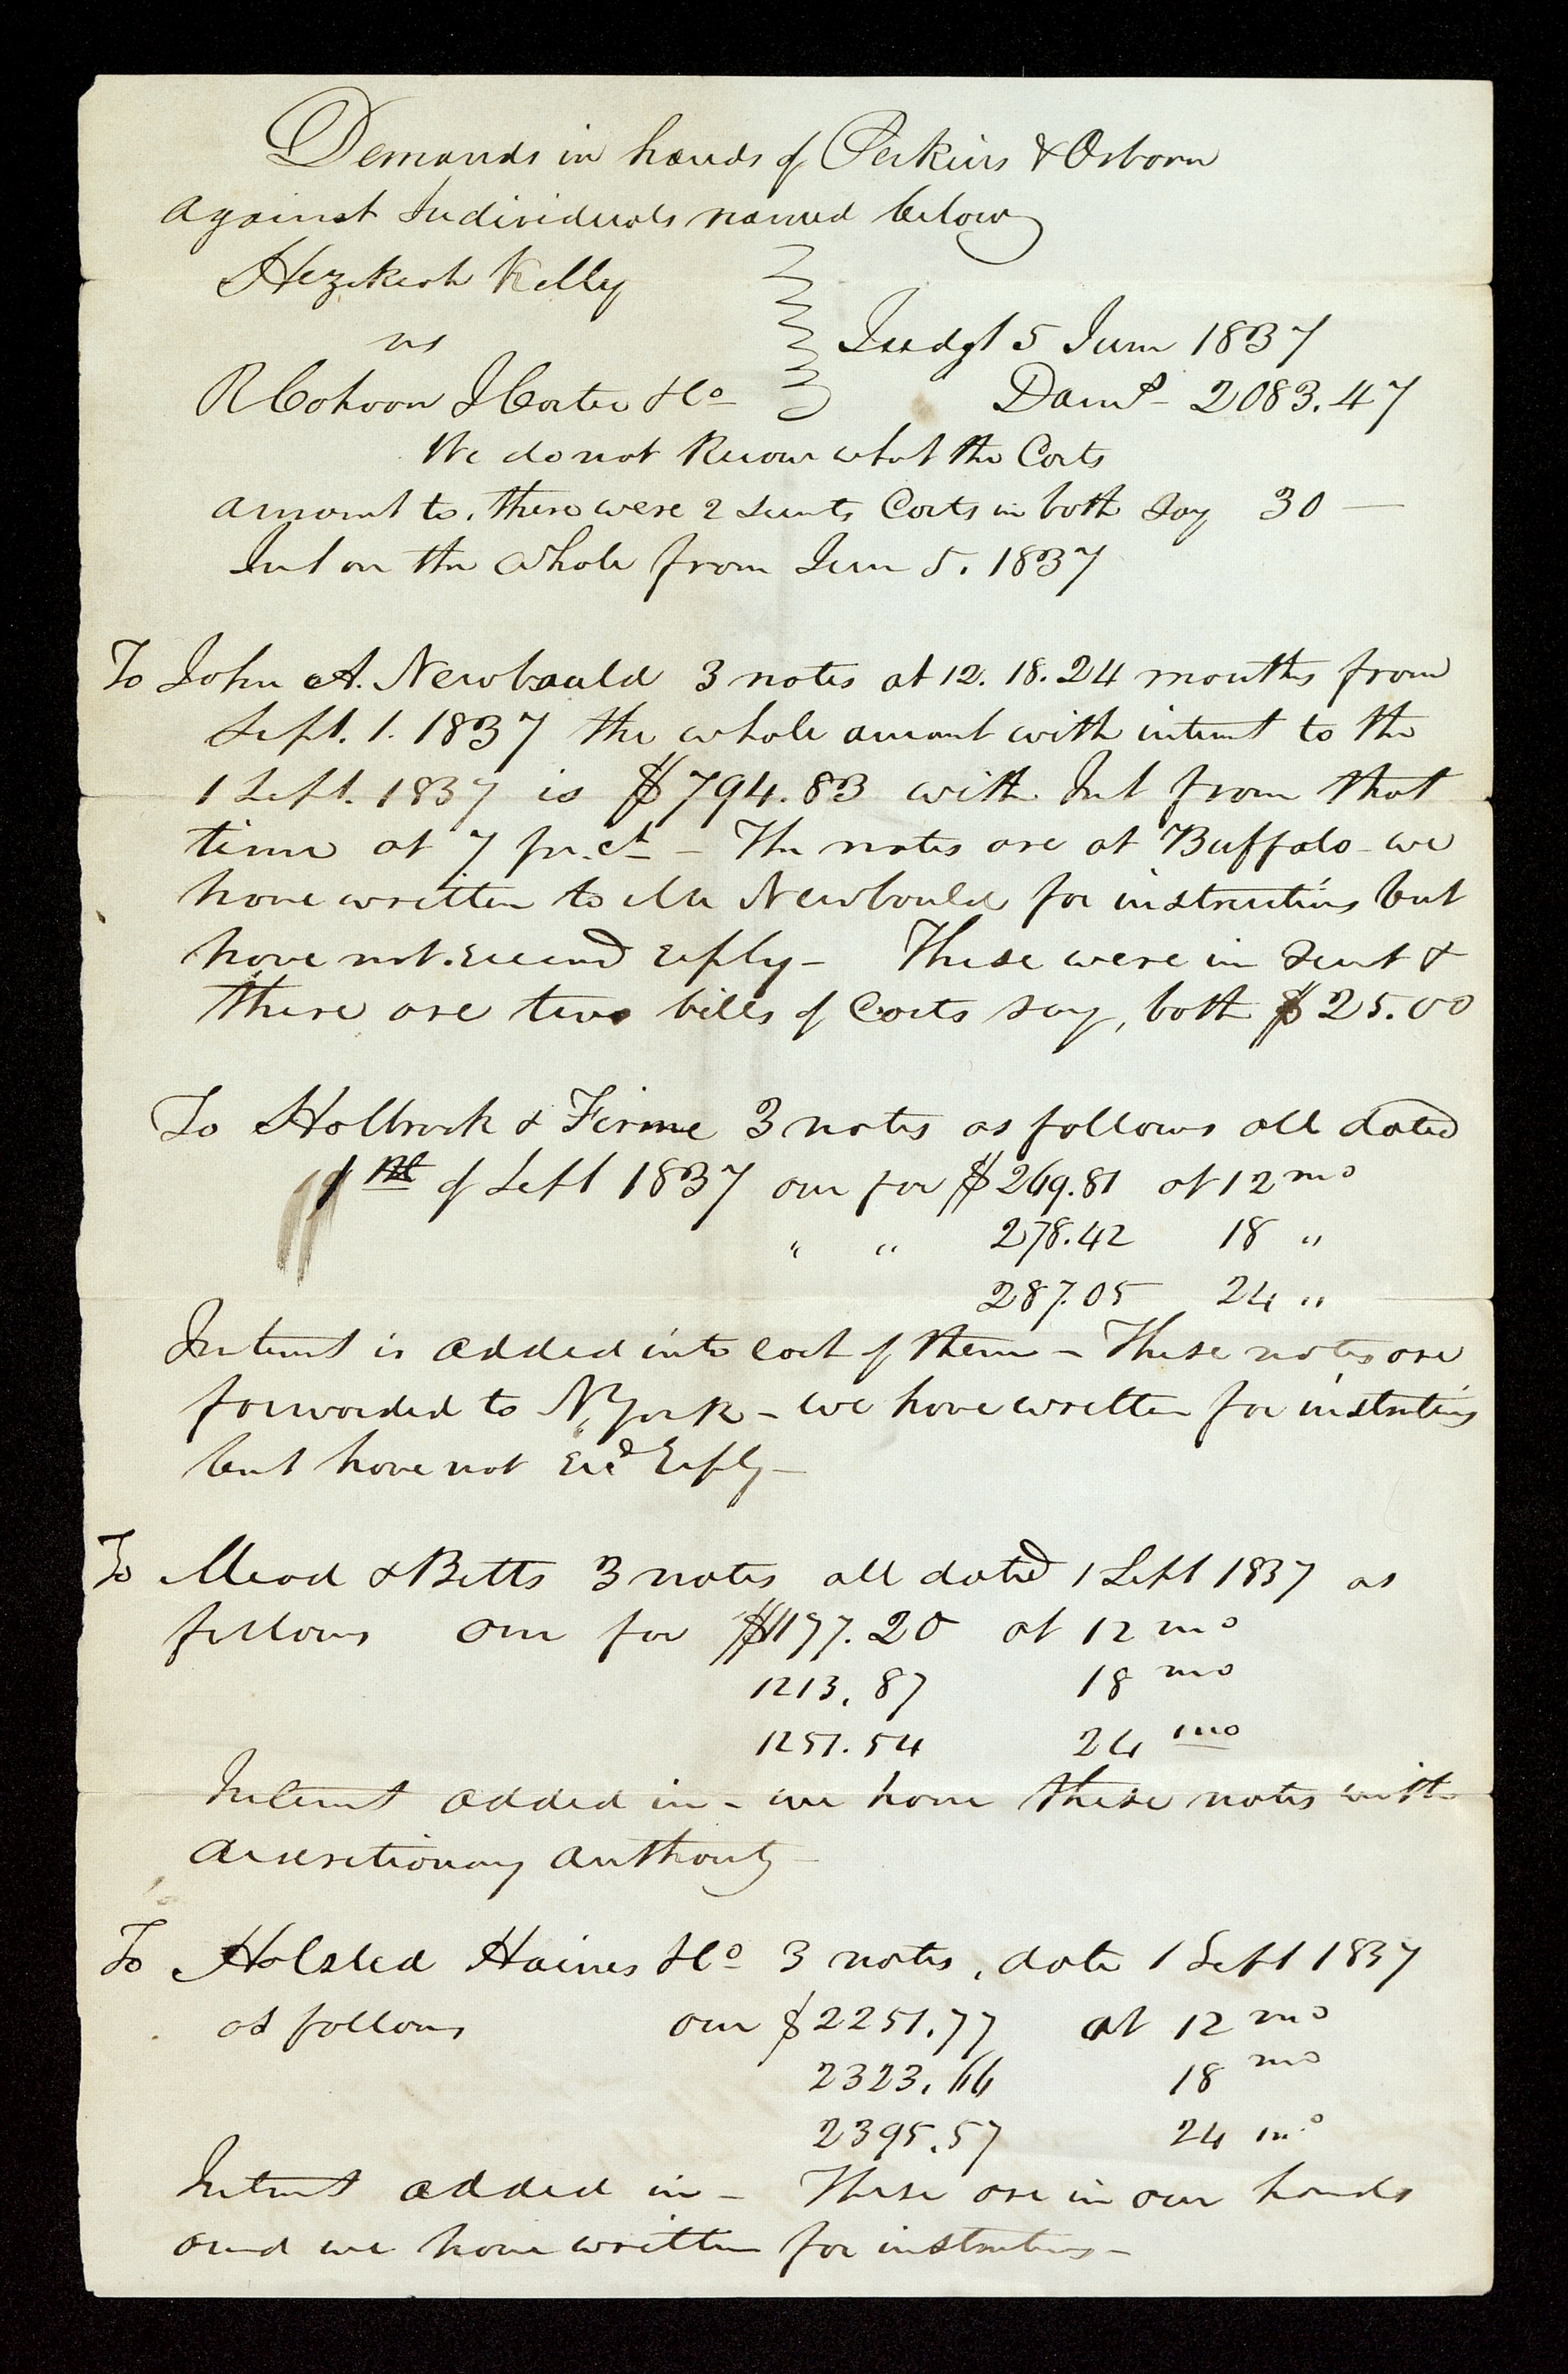 Demands in hands of Perkins & Osborn
against Individuals named below
Hezekiah Kelly
vs
R Cohoon J Carter & Co
Judgt 5 June 1837
Dams - 2083.47
We do not know what the Costs
amount to, there were 2 suits Costs in both say 30 —
Int on the whole from June 5. 1837
To John A. Newbould 3 notes at 12. 18. 24 months from
Sept. 1. 1837 the whole amount with interest to the
1 Sept. 1837 is $794.83 with Int from that
time at 7 pr. ct - The notes are at Buffalo - we
have written to Mr Newbould for instructions but
have not received reply - These were in suit &
there are two bills of Costs say, both $25.00
To Holbrook & Firme 3 notes as follows all dated
1st of Sept 1837 one for $269.81 at 12 mo
" " 278.42 18 "
287.05 24 "
Interest is added into each of them - These notes are
forwarded to N. York - we have written for instructions
but have not recd reply -
To Mead & Betts 3 notes all dated 1 Sept 1837 as
follows one for $1177.20 at 12 mo
1213.87 18 mo
1251.54 24 mo
Interest added in - we have these notes with
discretionary authority -
To Halsted Haines & Co 3 notes, date 1 Sept 1837
as follows one $2251.77 at 12 mo
2323.66 18 mo
2395.57 24 mo
Interest added in - These are in our hands
and we have written for instructions -